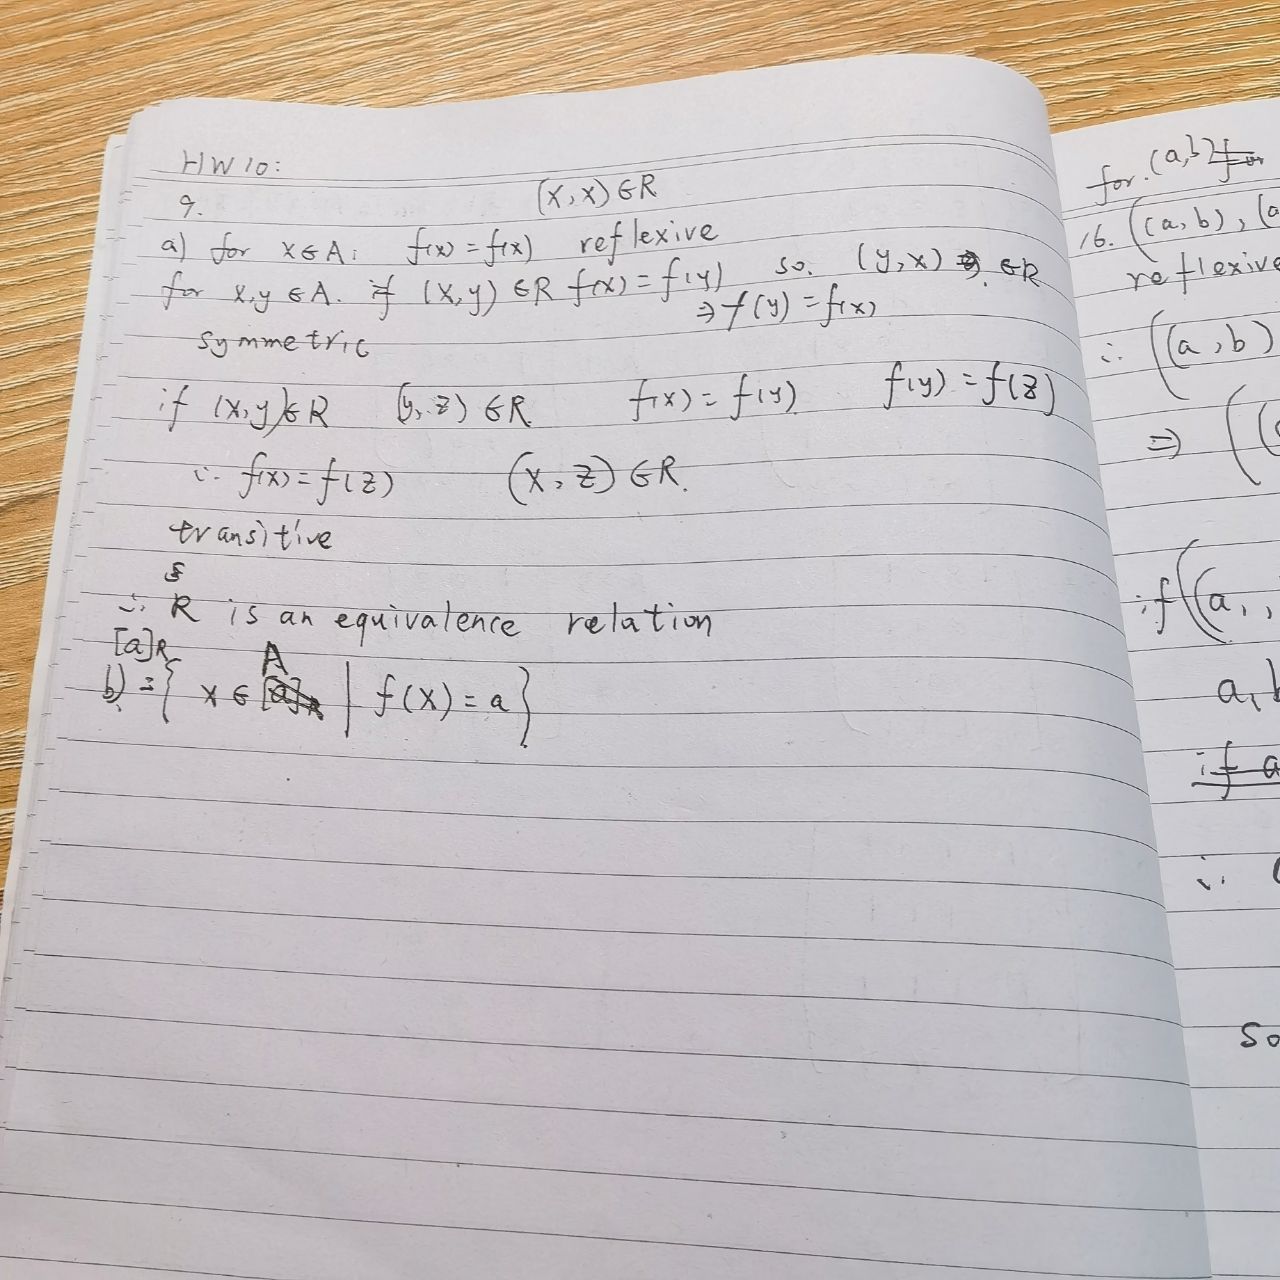 HW 10:
9.
(x,x) ∈R
a) for x∈A: f(x) = f(x) reflexive
for x,y ∈A. if (x,y) ∈R f(x) = f(y) so. (y,x) ∈R
⇒ f(y) = f(x)
symmetric
if (x,y)∈R (y,z) ∈R f(x) = f(y) f(y) = f(z)
∴ f(x) = f(z) (x,z) ∈R.
transitive
∴ R is an equivalence relation
[a]R
A
b) = { x ∈ | f(x) = a }
for (a,b)
16. ((a,b), (a
reflexive
∴ ((a,b)
⇒ ((
if ((a,,
a,b
if a
∴ (
so